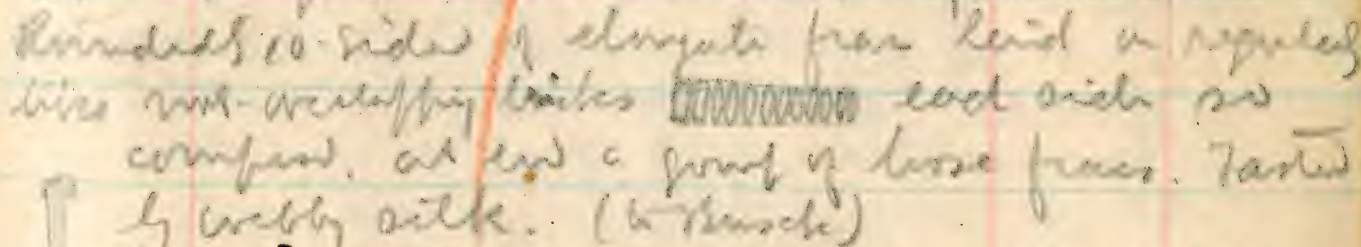 Roundedly 10-sided of elongate fras laid in regularly
like non-overlapping bricks each side so
composed, at end a group of loose frass. Fasted
by webby silk. (to Busck)